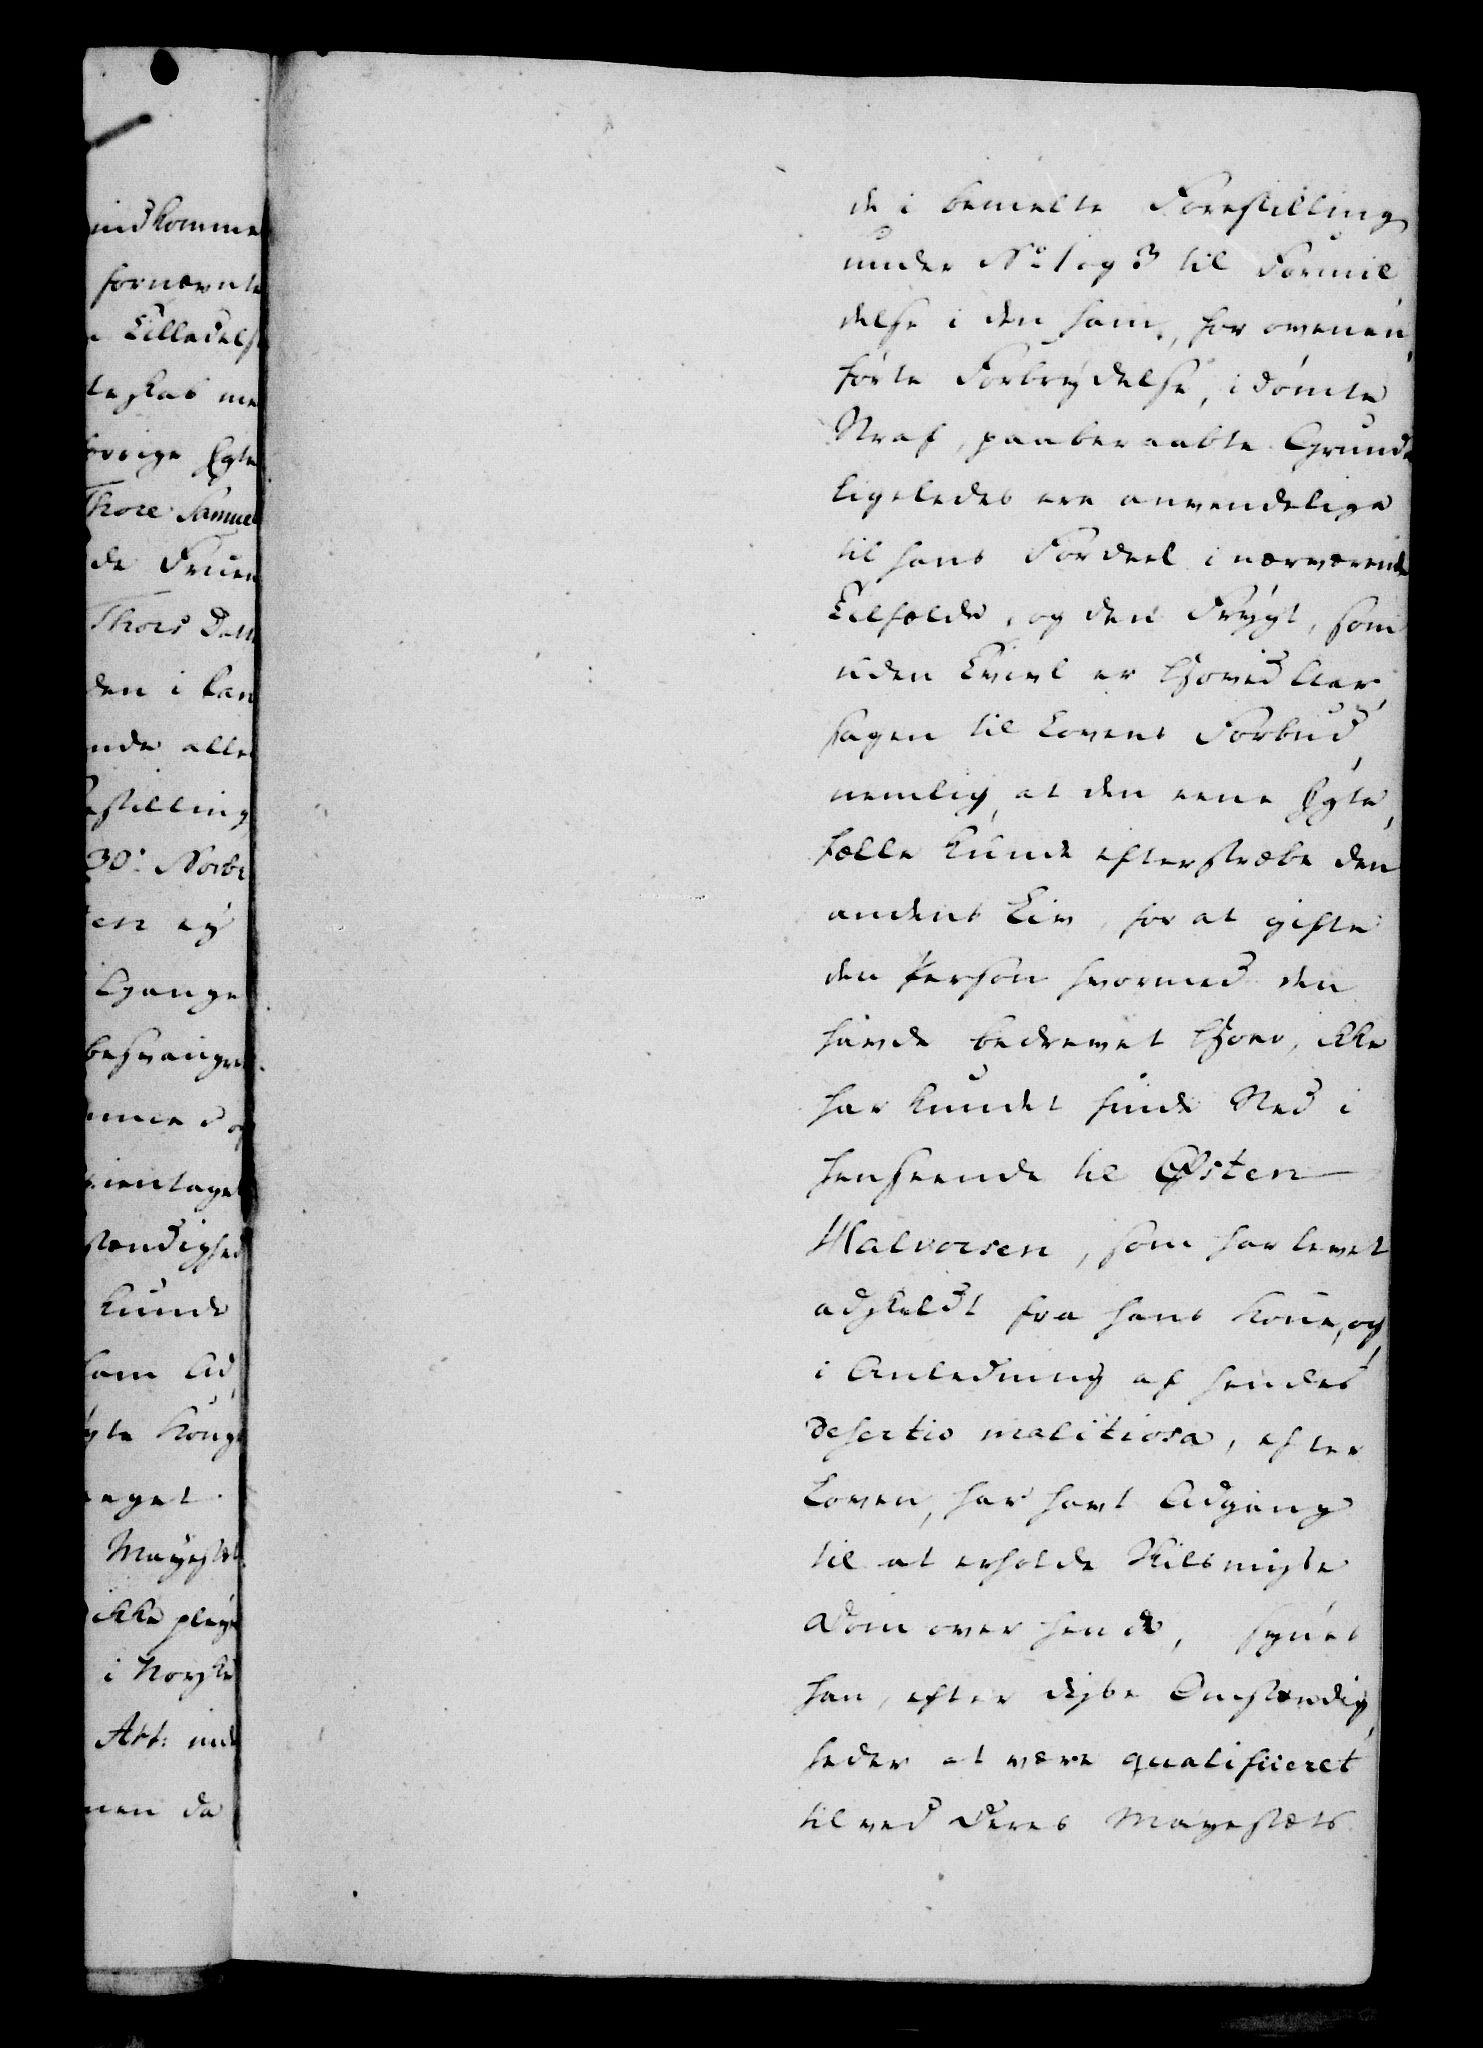 indkomme
fornævnte
Tilladelse
teskab me
forrige Egte
Thore Samuel
de Fruen
Thors Datt
den i Lan
nde alle
estilling
30: Novbr
en ey
Gange
besvangret
stændighed
kunde
ham Ad
eget
Mayestæt
ikke pleye
i Norske
Art: und
men da
de i bemelte Forestilling
under No 1 og 3 til Formil,
delse i den ham, for ovenan,
førte Forbrydelse, idømte
Straf, paaberaabte Grunde
ligeledes ere anvendelige
til hans Fordeel i nærværende
Tilfælde, og den Frygt, som
uden Tvivl er Hoved Aar,
sagen til Lovens Forbud,
nemlig, at den eene Egte,
fælle kunde efterstræbe den
andens Liv, for at gifte
den Person hvormed den
havde bedrevet Hoer, ikke
har kundet finde Sted i
henseende til Østen
Halvorsen, som har levet
adskildt fra hans Kone, og
i Anledning af hendes
desertio malitiosa, efter
Loven, har havt Adgang
til at erholde Skilsmisse
Dom over hende, synes
han, efter disse Omstændig,
heder at være qualificeret
til ved Deres Mayestæts